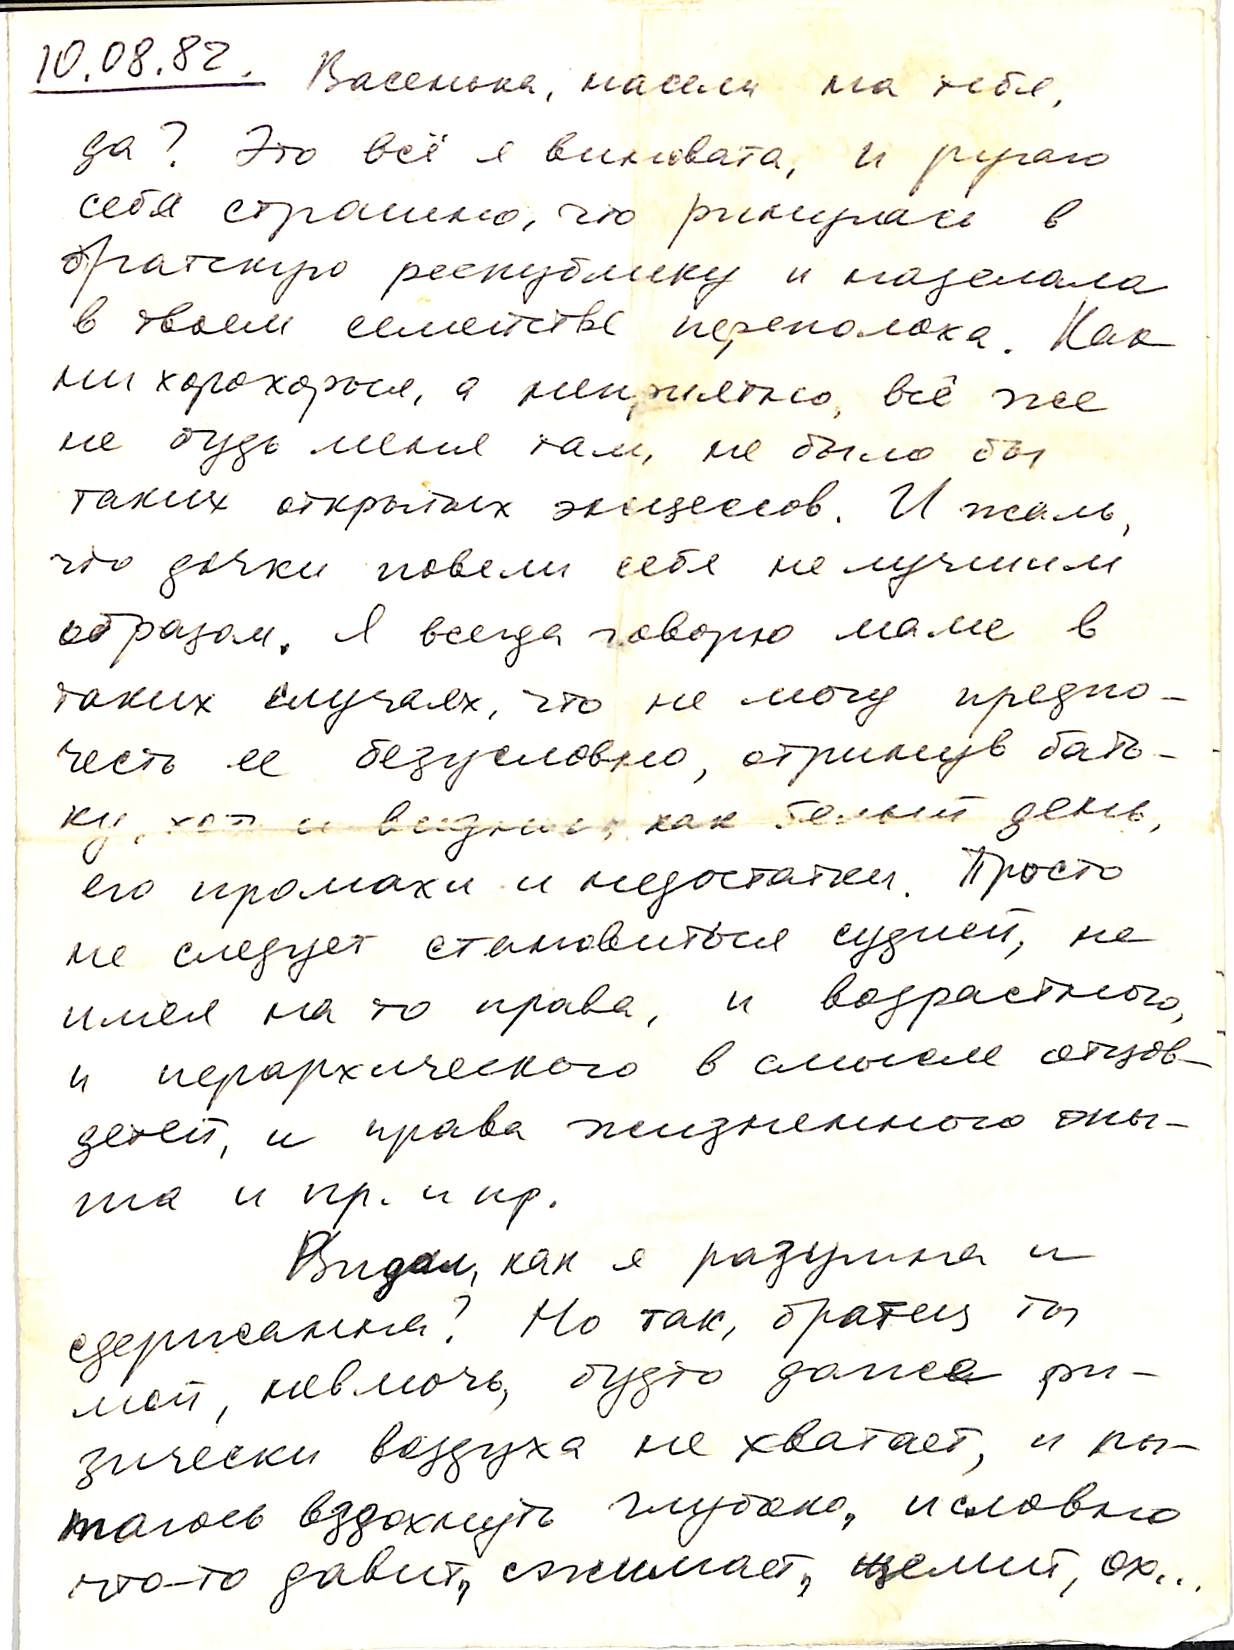 10.08.82. Васенька, насели на тебя,
да? Это всё я виновата, и ругаю
себя страшно, что ринулась в
братскую республику и наделала
в твоем семействе переполоха. Как
ни хорохорься, а неприятно, всё же
не будь меня там, не было бы
таких открытых эксцессов. И жаль,
что дочки повели себя нелучшим
образом. Я всегда говорю маме в
таких случаях, что не могу предпо-
честь ее безусловно, отринув бать-
ку, хотя и видны, как белый день,
его промахи и недостатки. Просто
не следует становиться судьей, не
имея на то права, и возрастного,
и иерархического в смысле отцов-
детей, и права жизненного опы-
та и пр. и пр.
Видал, как я разумна и
сдержанна? Но так, братец ты
мой, невмочь, будто даже фи-
зически воздуха не хватает, и пы-
таюсь вздохнуть глубоко, и словно
что-то давит, сжимает, щемит, ох...